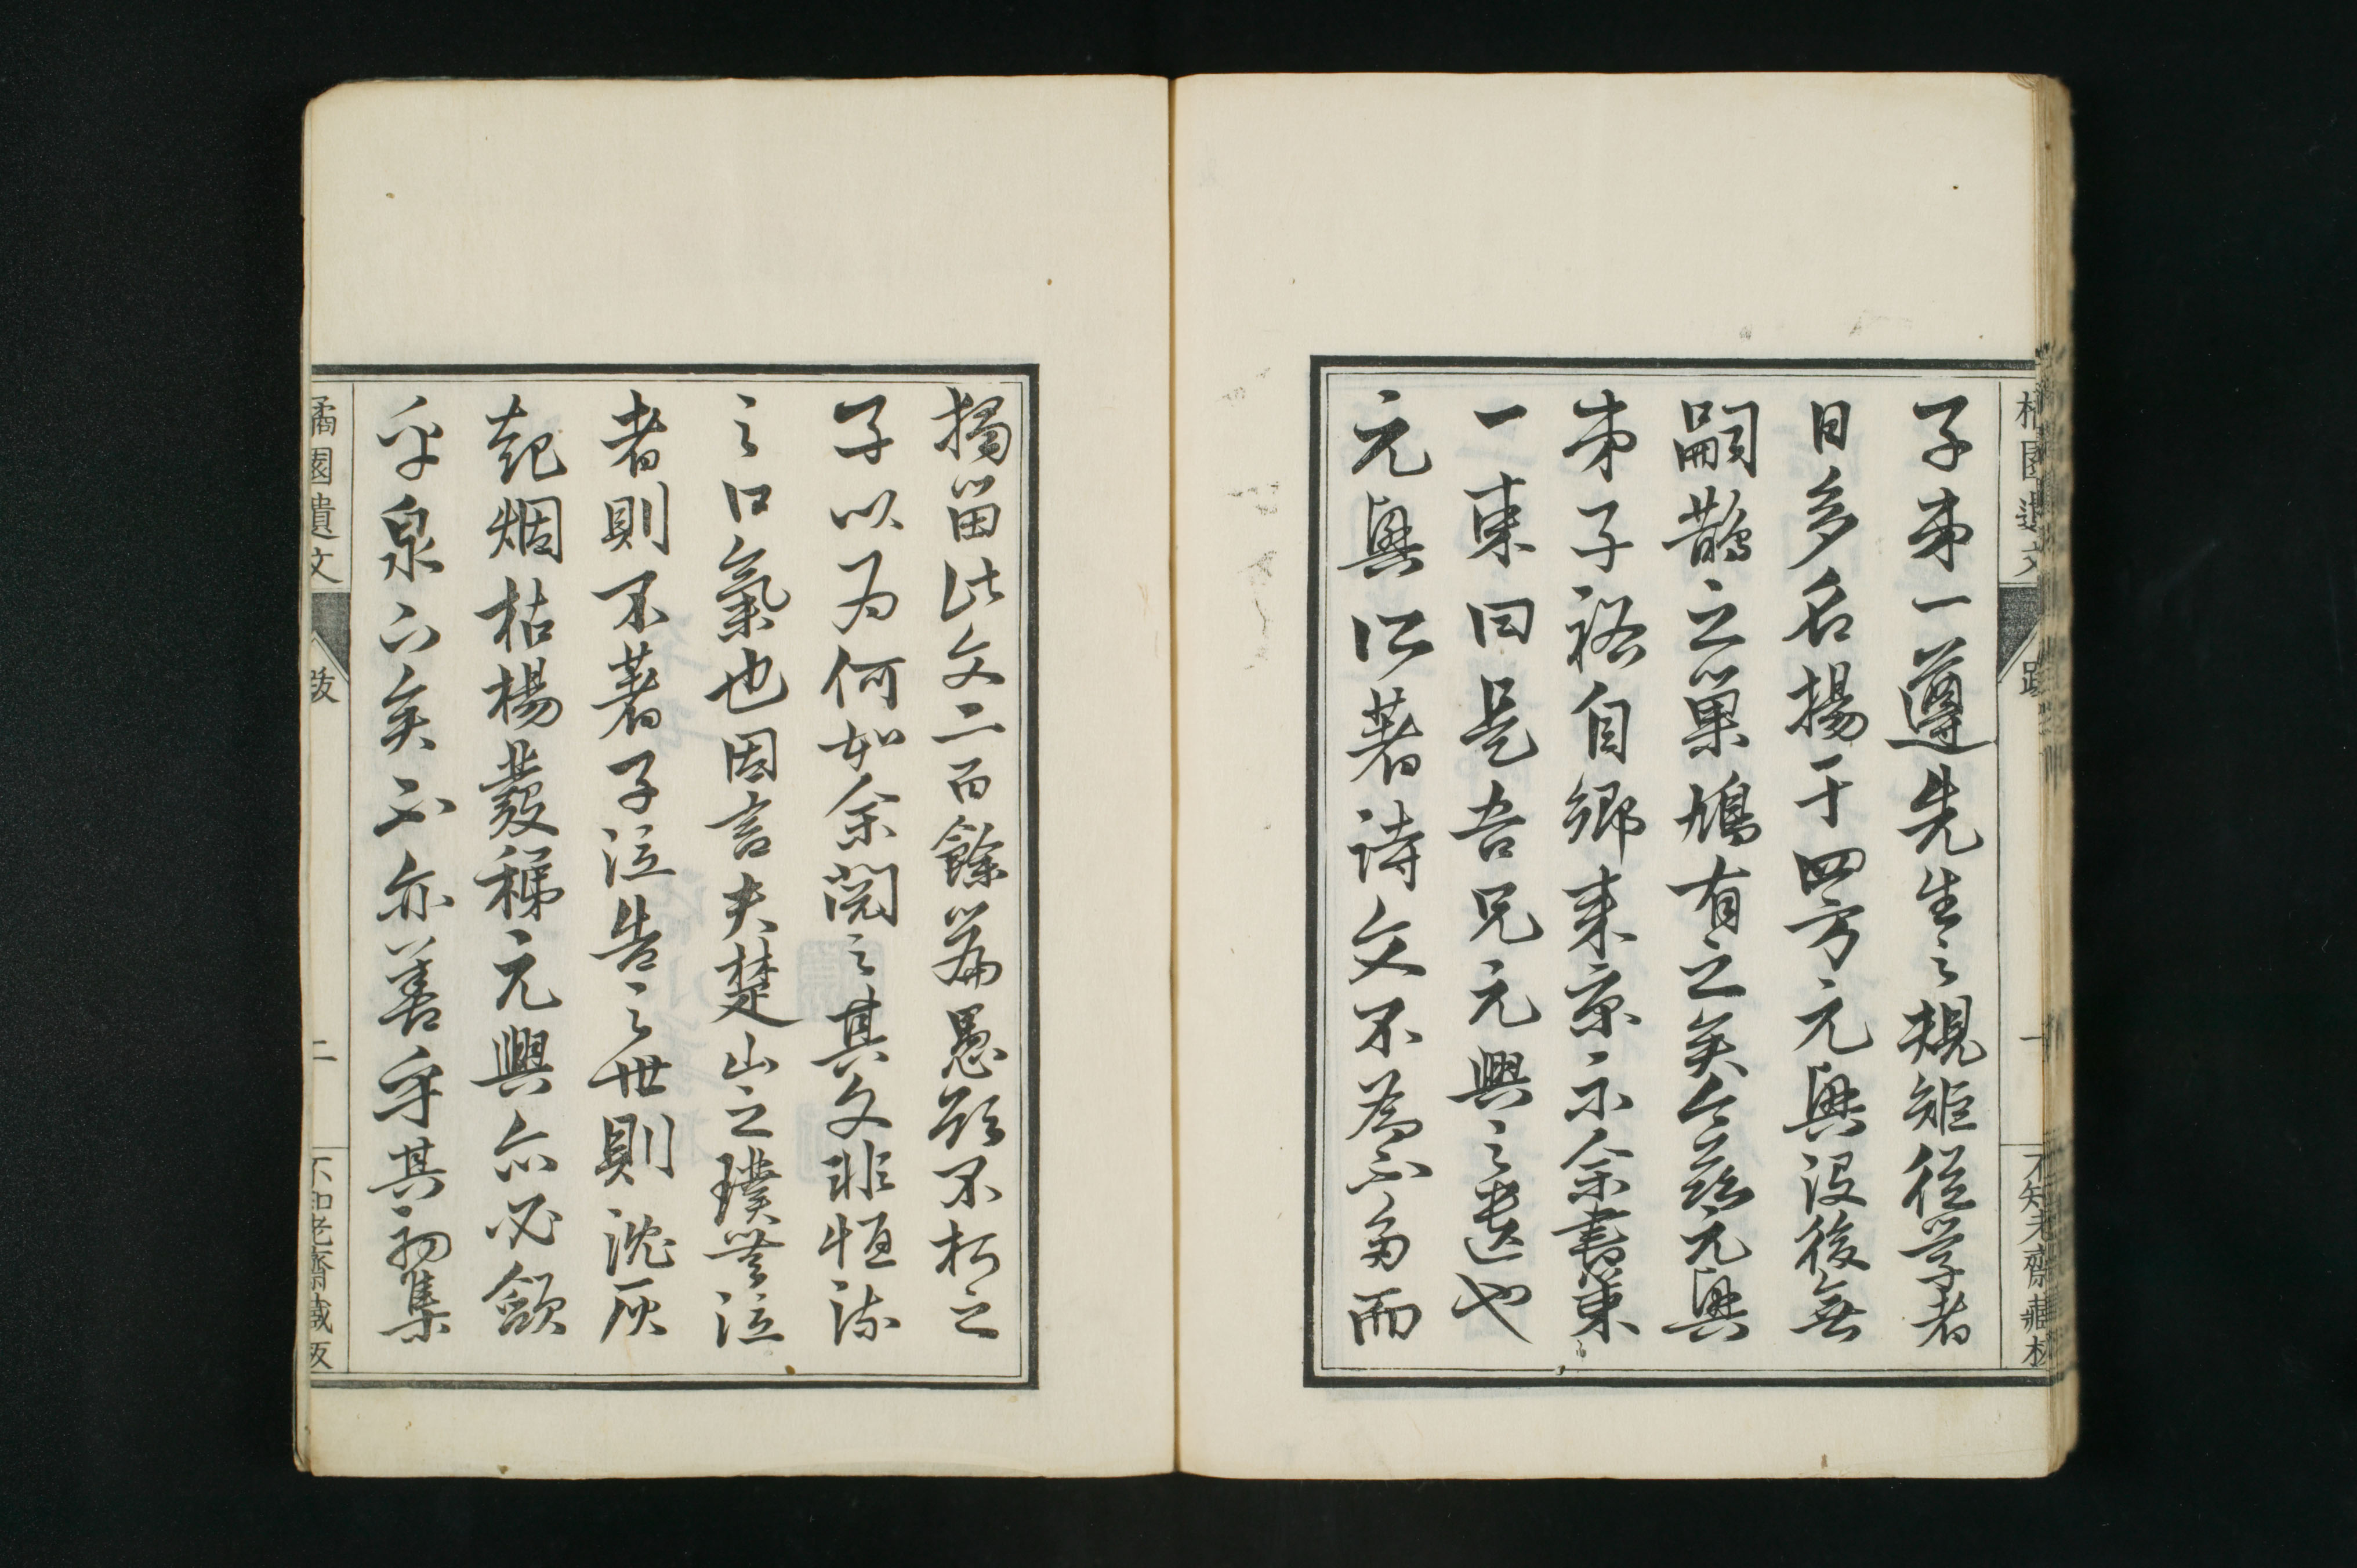 子弟一遵先生之規矩從学者
日多名揚于四方元興没後無
嗣鵲之巢鳩有之矣今茲元興
弟子裕自鄉来京示余書策
一束曰是吾兄元興之遺也
元興所著詩文不為不多而
獨留此文二百餘篇愚欲不朽之
子以为何如余閲之其文非恒流
之口氣也因言夫楚山之璞不泣
者則不著子泣告之世則沈灰
起烟枯楊發稊元興亦必領
乎泉下矣不亦善乎其初集
橘園遺文
跋
一
不知老齋藏板
橘園遺文
跋
二
不知老齋藏板